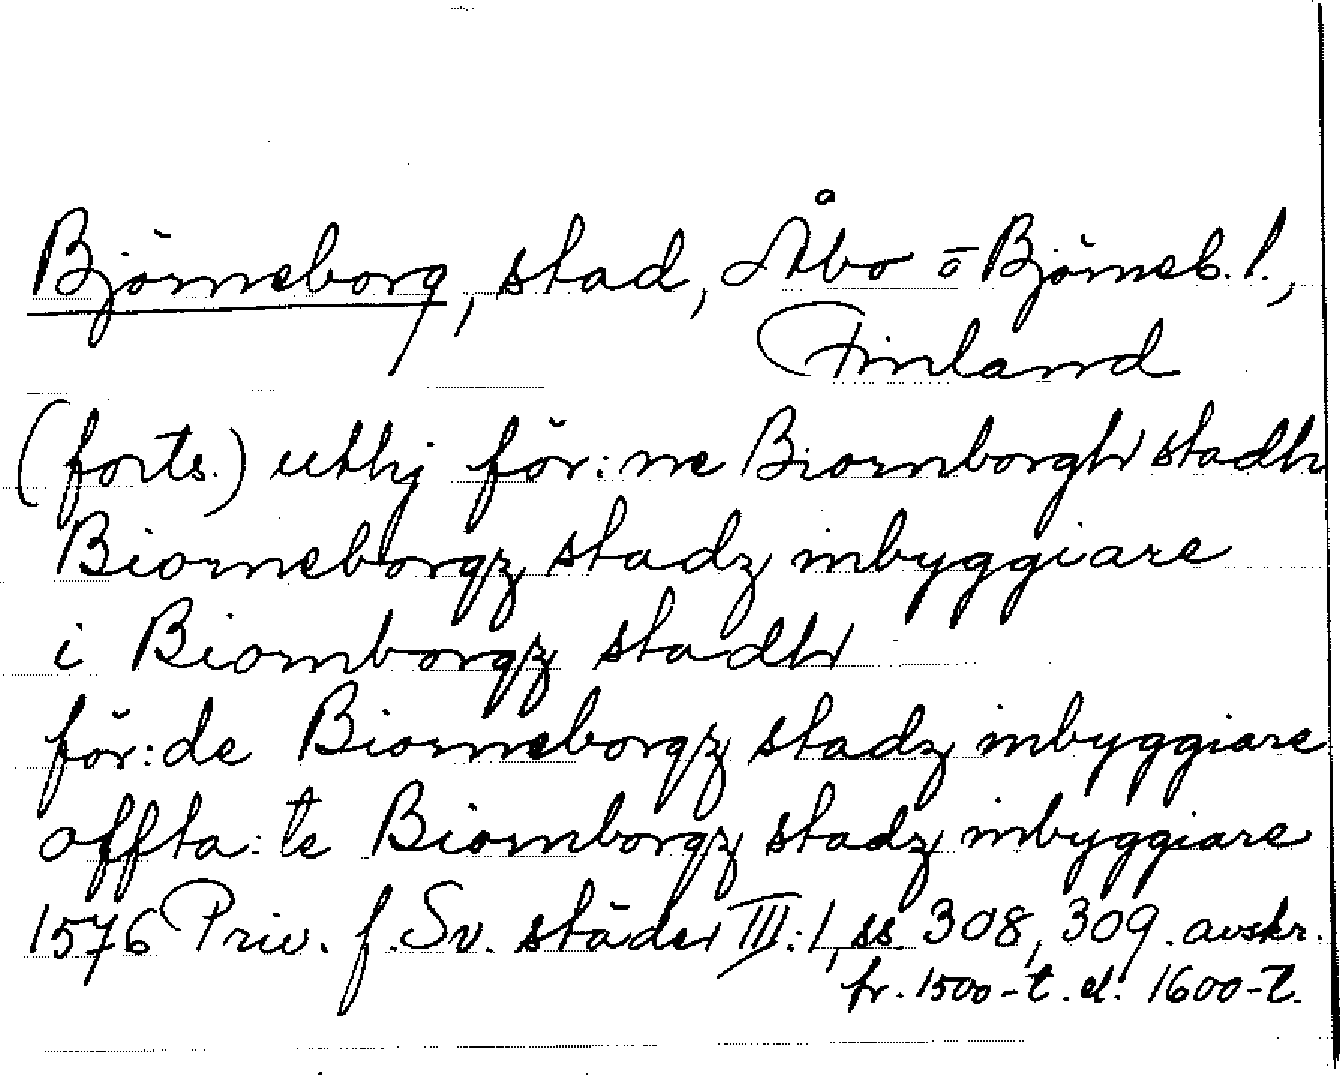 Björneborg, stad, Åbo o Björneb. l.,
Finland
(forts.) uthj för:ne Biornborgh stadh
Biorneborgz stadz inbyggiare
i Biornborgz stadh
för:de Biorneborgz stadz inbyggiare
offta:te Biornborgz stadz inbyggiare
1576 Priv. f. Sv. städer III:1, ss. 308, 309. avskr.
fr. 1500-t. el. 1600-t.